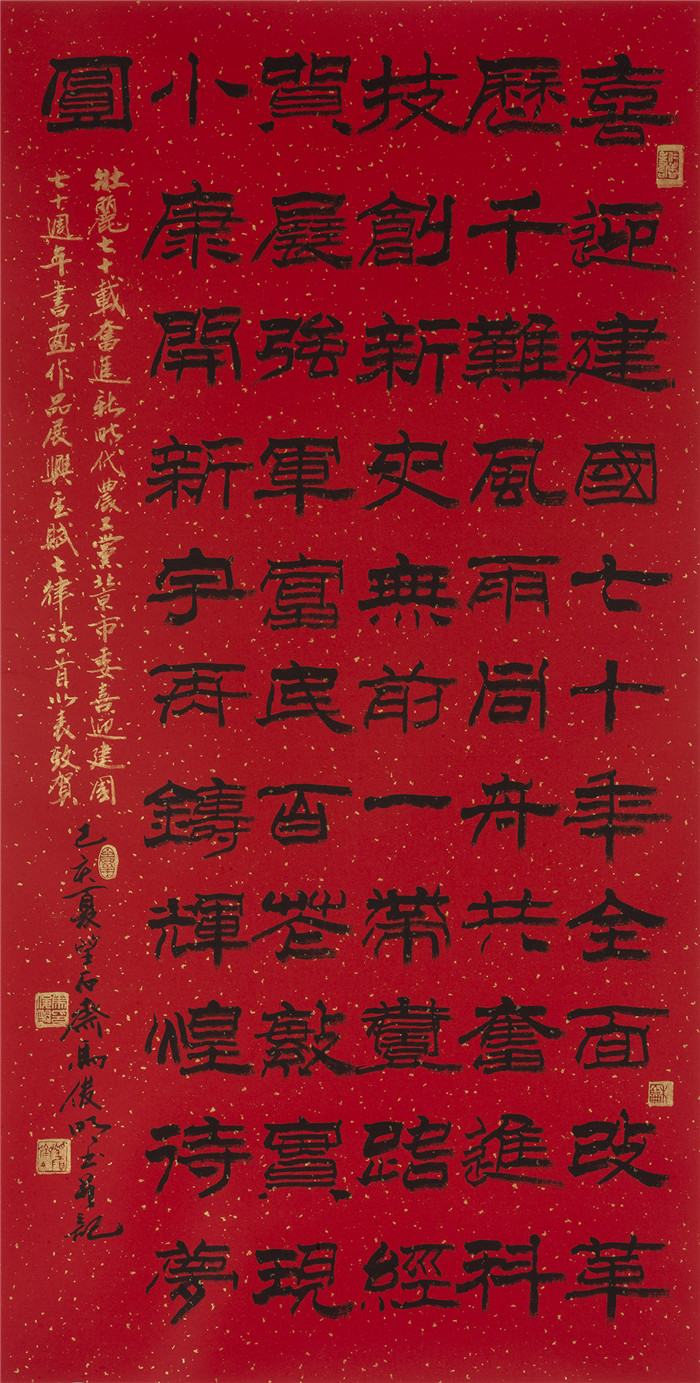 喜迎建國七十年全面改革
歷千難風雨同舟共奮進科
技創新史無前一帶路經
貿展強軍富民百花實現
小康開新宇再鑄輝煌待夢
圓
壯麗七十載奮進新时代農工黨北京市委喜迎建國
七十週年書畫作品展興至賦七律詩一首以表致賀
己亥夏望石齋馬俊明書並記